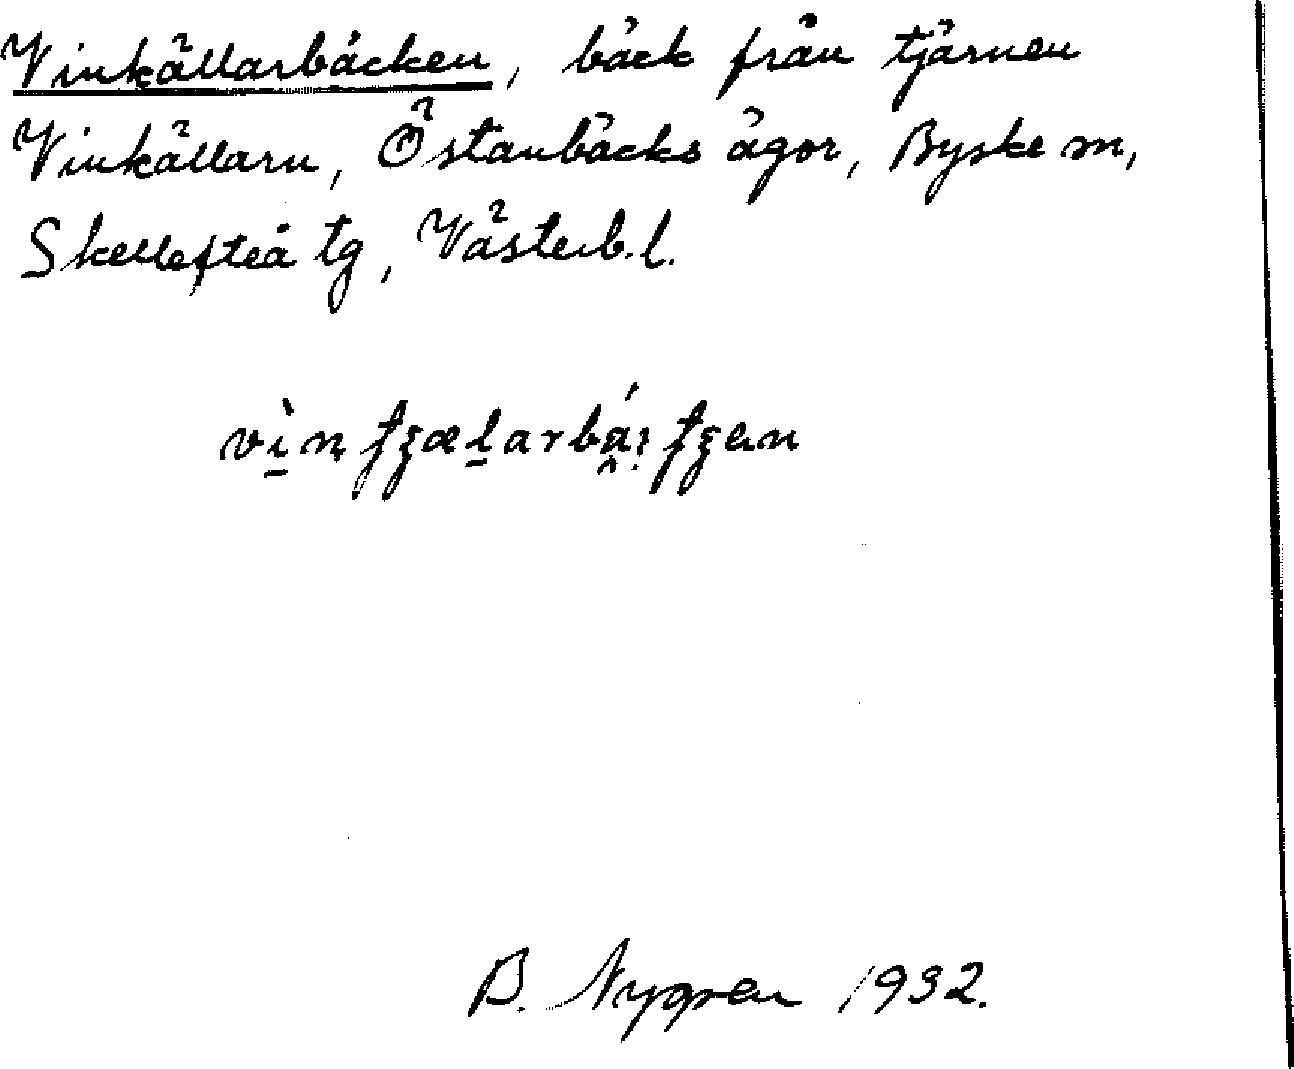 Vinkällarbäcken, bäck från tjärnen
Vinkällarn, Östanbäcks ägor, Byske sn,
Skellefteå tg, Västerb. l.
B. Nygren 1932.